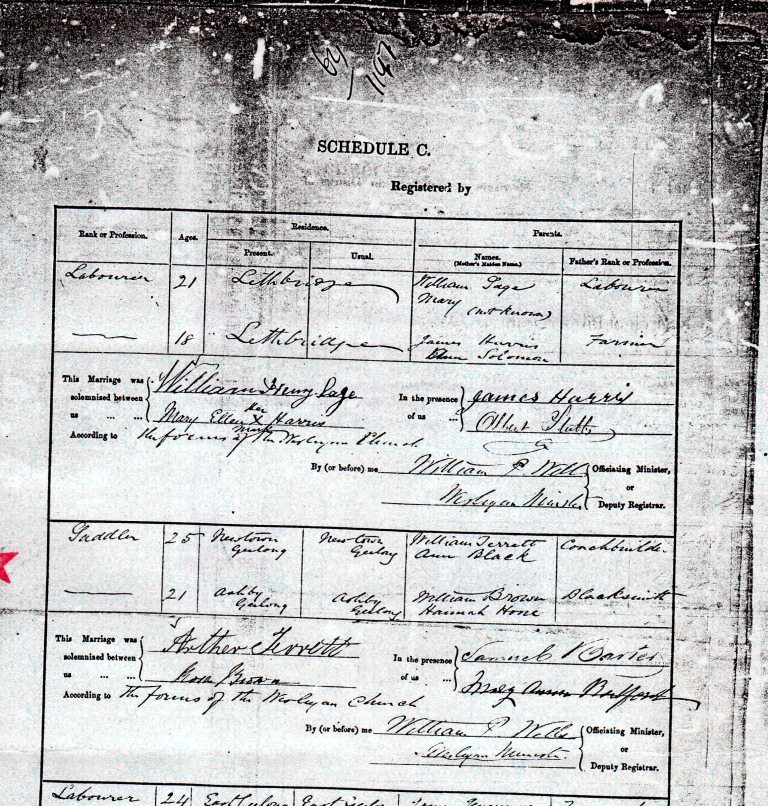 SCHEDULE C.
Registered by
Rank or Profession. Ages. Residence. Parents.
Present. Usual. Names. (Mother's Maiden Name.) Father's Rank or Profession.
Labourer 21 Lethbridge William Page Labourer
Mary (not known)
18 Lethbridge James Harris Farmer
Solomon
This Marriage was William Henry Page In the presence James Harris
solemnized between
us Mary Ellen X Harris of us Albert
her
mark
According to the forms of the Wesleyan Church
By (or before) me William P. Wells Officiating Minister,
or
Wesleyan Minister Deputy Registrar.
Saddler 25 Newtown Geelong Newtown Geelong William Ferrett Coachbuilder
Ann Black
21 Ashby Geelong Ashby Geelong William Brown Blacksmith
Hannah Hone
This Marriage was Arthur Ferrett In the presence Samuel
solemnized between
us Rosa Brown of us
According to the forms of the Wesleyan Church
By (or before) me William P. Wells Officiating Minister,
or
Wesleyan Minister Deputy Registrar.
Labourer 24 East Geelong